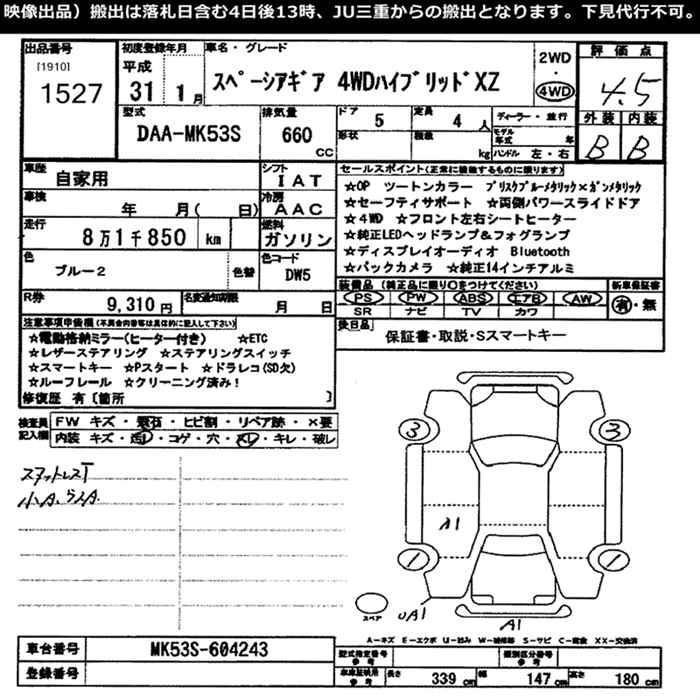 映像出品）搬出は落札日含む4日後13時、JU三重からの搬出となります。下見代行不可。
出品番号
[1910]
1527
初度登録年月
平成
31 1月
車名・グレード
スペーシアギア 4WDハイブリッドXZ
2WD
・
4WD
評価点
4.5
外装 内装
B B
型式
DAA-MK53S
排気量
660
cc
ドア
5
形状
定員
4人
積載
kg
ディーラー・並行
モデル年式 年
ハンドル 左・右
車歴
自家用
シフト
IAT
車検
年 月( 日)
冷房
AAC
走行
8万1千850 km
燃料
ガソリン
色
ブルー2
色替
色コード
DW5
R券
9,310円
名変通知期限
月 日
セールスポイント(正常に稼働するものに限ります)
☆OP ツートンカラー ブリスクブルーメタリック×ガンメタリック
☆セーフティサポート ☆両側パワースライドドア
☆4WD ☆フロント左右シートヒーター
☆純正LEDヘッドランプ&フォグランプ
☆ディスプレイオーディオ Bluetooth
☆バックカメラ ☆純正14インチアルミ
装備品 (純正品に限り○をつけてください)
PS PW ABS エアB AW
SR ナビ TV カワ
新車保証書
有・無
後日品
保証書・取説・Sスマートキー
注意事項申告欄(不具合内容等は具体的に記入して下さい)
☆電動格納ミラー(ヒーター付き) ☆ETC
☆レザーステアリング ☆ステアリングスイッチ
☆スマートキー ☆Pスタート ☆ドラレコ(SD欠)
☆ルーフレール ☆クリーニング済み!
修復歴 有〔箇所 〕
検査員記入欄
FW キズ・飛石・ヒビ割・リペア跡・×要
内装 キズ・汚レ・コゲ・穴・スレ・キレ・破レ
スタットレスT
小A、ラスA
3 3
A1
1 1
スペア
UA1
A1
A－キズ E－エクボ U－凹み W－補修跡 S－サビ C－腐食 XX－交換済
車台番号
MK53S-604243
登録番号
型式指定番号
参考
類別区分番号
参考
車庫証明用
参考
長さ 339 cm
幅 147 cm
高さ 180 cm